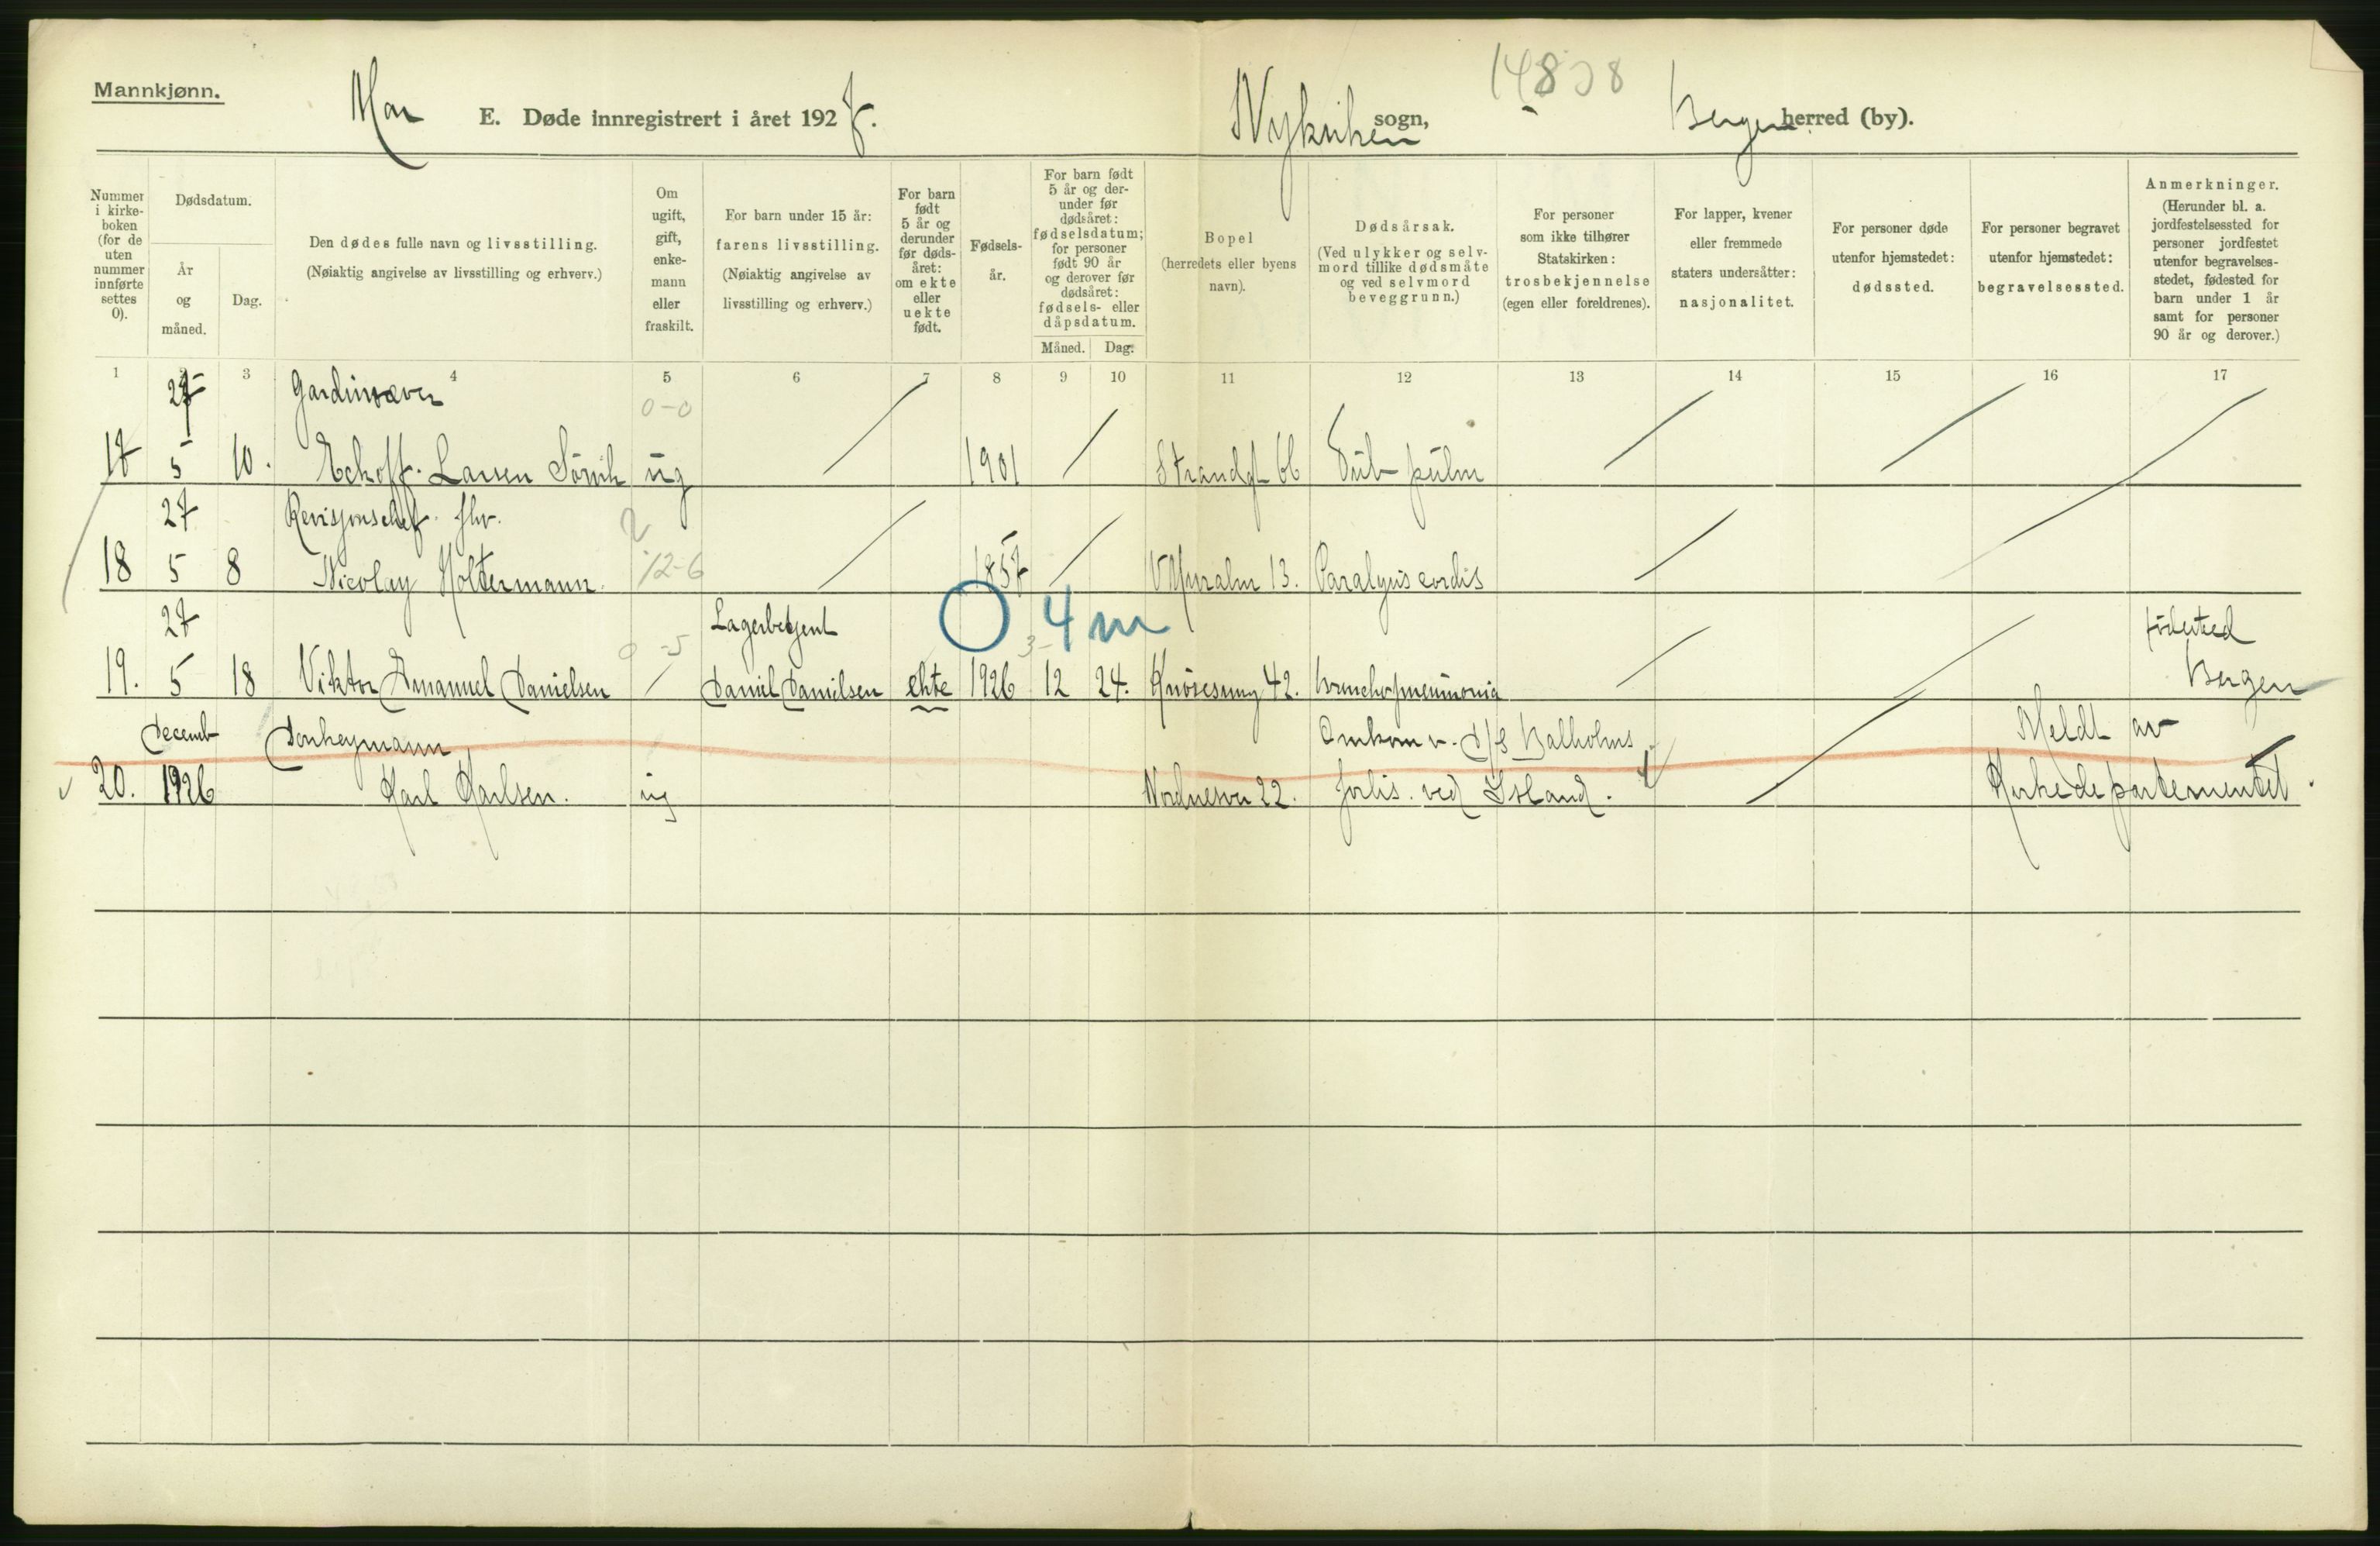 Mannkjønn.
Mai E. Døde innregistrert i året 1927. Nykirken sogn, Bergen herred (by).
14808
Nummer i kirkeboken (for de uten nummer innførte settes 0).
Dødsdatum.
År og måned.
Dag.
Den dødes fulle navn og livsstilling.
(Nøiaktig angivelse av livsstilling og erhverv.)
Om ugift, gift, enkemann eller fraskilt.
For barn under 15 år: farens livsstilling.
(Nøiaktig angivelse av livsstilling og erhverv.)
For barn født 5 år og derunder før dødsåret: om ekte eller uekte født.
Fødselsår.
For barn født 5 år og derunder før dødsåret: fødselsdatum; for personer født 90 år og derover før dødsåret: fødsels- eller dåpsdatum.
Måned. Dag.
Bopel (herredets eller byens navn).
Dødsårsak.
(Ved ulykker og selvmord tillike dødsmåte og ved selvmord beveggrunn.)
For personer som ikke tilhører Statskirken: trosbekjennelse (egen eller foreldrenes).
For lapper, kvener eller fremmede staters undersåtter: nasjonalitet.
For personer døde utenfor hjemstedet: dødssted.
For personer begravet utenfor hjemstedet: begravelsessted.
Anmerkninger.
(Herunder bl. a. jordfestelsessted for personer jordfestet utenfor begravelsesstedet, fødested for barn under 1 år samt for personer 90 år og derover.)
1 3 4 5 6 7 8 9 10 11 12 13 14 15 16 17
27 Gardinvæver 0-0
17 5 10. Larsen ug 1901 Strandgt 66 Tub pulm
27 Revisjonschef fhv. 2
18 5 8 Nicolay Holtermann. 12-6 1857 13. Paralysis cordis
27 Lagerbetjent 4 m fødested
19. 5 18 Viktor Emanuel Danielsen Daniel Danielsen ekte 1926 12 24. 42. bronchopneumonia Bergen
Decemb Donkeymann Omkom v. D/S Balholms Meldt av
20. 1926 Karl Karlsen. ug Nordnesvei 22. forlis. ved Island. Kirkedepartementet.